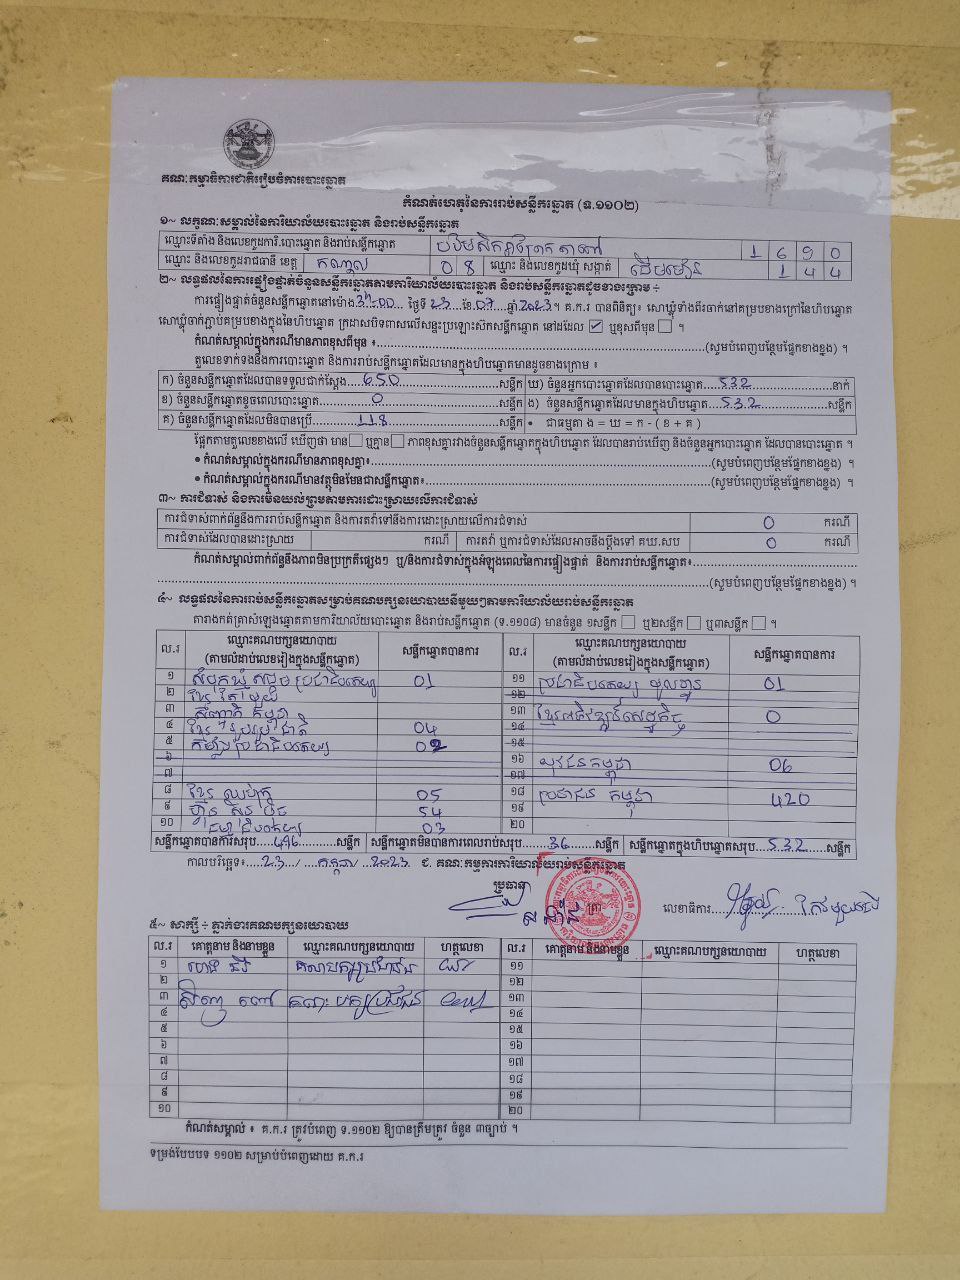 គណៈកម្មាធិការជាតិរៀបចំការបោះឆ្នោត
កំណត់ហេតុនៃការរាប់សន្លឹកឆ្នោត (ទ.១១០២)
១~ លក្ខណៈសម្គាល់នៃការិយាល័យបោះឆ្នោត និងរាប់សន្លឹកឆ្នោត
ឈ្មោះទីតាំង និងលេខកូដការិ.បោះឆ្នោត និងរាប់សន្លឹកឆ្នោត 1690
ឈ្មោះ និងលេខកូដរាជធានី ខេត្ត កណ្តាល 08 ឈ្មោះ និងលេខកូដឃុំ សង្កាត់ 144
២~ លទ្ធផលនៃការផ្ទៀងផ្ទាត់ចំនួនសន្លឹកឆ្នោតតាមការិយាល័យបោះឆ្នោត និងរាប់សន្លឹកឆ្នោតដូចខាងក្រោម ÷
ការផ្ទៀងផ្ទាត់ចំនួនសន្លឹកឆ្នោតនៅម៉ោង ថ្ងៃទី 23 ខែ 07 ឆ្នាំ 2023 ។ គ.ក.រ បានពិនិត្យ៖ សោឃ្មុំទាំងពីរចាក់នៅគម្របខាងក្រៅនៃហិបឆ្នោត
សោឃ្មុំចាក់ភ្ជាប់គម្របខាងក្នុងនៃហិបឆ្នោត ក្រដាសបិទពាសលើសន្លះប្រឡោះស៊កសន្លឹកឆ្នោត នៅដដែល ☑ ឬខុសពីមុន ☐ ។
កំណត់សម្គាល់ក្នុងករណីមានភាពខុសពីមុន ៖ (សូមបំពេញបន្ថែមផ្នែកខាងខ្នង) ។
តួលេខទាក់ទងនឹងការបោះឆ្នោត និងការរាប់សន្លឹកឆ្នោតដែលមានក្នុងហិបឆ្នោតមានដូចខាងក្រោម ៖
ក) ចំនួនសន្លឹកឆ្នោតដែលបានទទួលជាក់ស្តែង 650 សន្លឹក ឃ) ចំនួនអ្នកបោះឆ្នោតដែលបានបោះឆ្នោត 532 នាក់
ខ) ចំនួនសន្លឹកឆ្នោតខូចពេលបោះឆ្នោត 0 សន្លឹក ង) ចំនួនសន្លឹកឆ្នោតដែលមានក្នុងហិបឆ្នោត 532 សន្លឹក
គ) ចំនួនសន្លឹកឆ្នោតដែលមិនបានប្រើ 118 សន្លឹក • ជាធម្មតា ង = ឃ = ក - ( ខ + គ )
ផ្អែកតាមតួលេខខាងលើ ឃើញថា មាន ☐ ឬគ្មាន ☐ ភាពខុសគ្នារវាងចំនួនសន្លឹកឆ្នោតក្នុងហិបឆ្នោត ដែលបានរាប់ឃើញ និងចំនួនអ្នកបោះឆ្នោត ដែលបានបោះឆ្នោត ។
• កំណត់សម្គាល់ក្នុងករណីមានភាពខុសគ្នា៖ (សូមបំពេញបន្ថែមផ្នែកខាងខ្នង) ។
• កំណត់សម្គាល់ក្នុងករណីមានវត្ថុមិនមែនជាសន្លឹកឆ្នោត៖ (សូមបំពេញបន្ថែមផ្នែកខាងខ្នង) ។
៣~ ការជំទាស់ និងការមិនយល់ព្រមតាមការដោះស្រាយលើការជំទាស់
ការជំទាស់ពាក់ព័ន្ធនឹងការរាប់សន្លឹកឆ្នោត និងការតវ៉ាទៅនឹងការដោះស្រាយលើការជំទាស់ 0 ករណី
ការជំទាស់ដែលបានដោះស្រាយ ករណី ការតវ៉ា ឬការជំទាស់ដែលអាចនឹងប្តឹងទៅ គឃ.សប 0 ករណី
កំណត់សម្គាល់ពាក់ព័ន្ធនឹងភាពមិនប្រក្រតីផ្សេងៗ ឬ/និងការជំទាស់ក្នុងអំឡុងពេលនៃការផ្ទៀងផ្ទាត់ និងការរាប់សន្លឹកឆ្នោត៖
(សូមបំពេញបន្ថែមផ្នែកខាងខ្នង) ។
៤~ លទ្ធផលនៃការរាប់សន្លឹកឆ្នោតសម្រាប់គណបក្សនយោបាយនីមួយៗតាមការិយាល័យរាប់សន្លឹកឆ្នោត
តារាងកត់ត្រាសំឡេងឆ្នោតតាមការិយាល័យបោះឆ្នោត និងរាប់សន្លឹកឆ្នោត (ទ.១១០៨) មានចំនួន ១សន្លឹក ☐ ឬ២សន្លឹក ☐ ឬ៣សន្លឹក ☐ ។
ល.រ ឈ្មោះគណបក្សនយោបាយ (តាមលំដាប់លេខរៀងក្នុងសន្លឹកឆ្នោត) សន្លឹកឆ្នោតបានការ ល.រ ឈ្មោះគណបក្សនយោបាយ (តាមលំដាប់លេខរៀងក្នុងសន្លឹកឆ្នោត) សន្លឹកឆ្នោតបានការ
១ សំបុកឃ្មុំសង្គមប្រជាធិបតេយ្យ 01 ១១ ប្រជាធិបតេយ្យ មូលដ្ឋាន 01
២ ខ្មែរតែមួយ ១២
៣ សញ្ជាតិកម្ពុជា ១៣ ខ្មែរអភិវឌ្ឍន៍សេដ្ឋកិច្ច 0
៤ ខ្មែររួបរួមជាតិ 04 ១៤
៥ កម្លាំងប្រជាធិបតេយ្យ 02 ១៥
៦ ១៦ យុវជនកម្ពុជា 06
៧ ១៧
៨ ខ្មែរឈប់ក្រ 05 ១៨ ប្រជាជនកម្ពុជា 420
៩ ហ៊្វុនស៊ិនប៉ិច 54 ១៩
១០ 03 ២០
សន្លឹកឆ្នោតបានការសរុប 496 សន្លឹក សន្លឹកឆ្នោតមិនបានការពេលរាប់សរុប 36 សន្លឹក សន្លឹកឆ្នោតក្នុងហិបឆ្នោតសរុប 532 សន្លឹក
កាលបរិច្ឆេទ៖ 23 / កក្កដា / 2023 ជ. គណៈកម្មការការិយាល័យរាប់សន្លឹកឆ្នោត
ប្រធាន
ត្រា
លេខាធិការ
៥~ សាក្សី ÷ ភ្នាក់ងារគណបក្សនយោបាយ
ល.រ គោត្តនាម និងនាមខ្លួន ឈ្មោះគណបក្សនយោបាយ ហត្ថលេខា ល.រ គោត្តនាម និងនាមខ្លួន ឈ្មោះគណបក្សនយោបាយ ហត្ថលេខា
១ គណបក្សប្រជាជន ១១
២ ១២
៣ គណៈបក្សប្រជាជន ១៣
៤ ១៤
៥ ១៥
៦ ១៦
៧ ១៧
៨ ១៨
៩ ១៩
១០ ២០
កំណត់សម្គាល់ ៖ គ.ក.រ ត្រូវបំពេញ ទ.១១០២ ឱ្យបានត្រឹមត្រូវ ចំនួន ៣ច្បាប់ ។
ទម្រង់បែបបទ ១១០២ សម្រាប់បំពេញដោយ គ.ក.រ